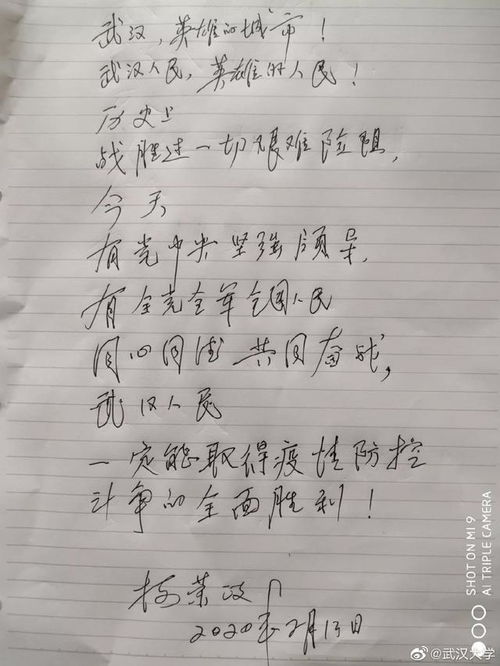 武汉，英雄的城市！
武汉人民，英雄的人民！
历史上
战胜过一切艰难险阻，
今天
有党中央坚强领导，
有全党全军全国人民
同心同德 共同奋战，
武汉人民
一定能取得疫情防控
斗争的全面胜利！
杨荣
2020年2月13日
SHOT ON MI 9
AI TRIPLE CAMERA
@武汉大学